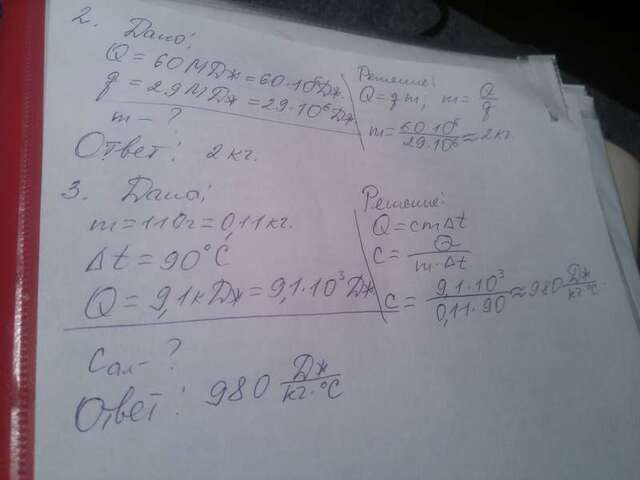 2. Дано:
Q = 60 МДж = 60·10⁶ Дж.
q = 29 МДж = 29·10⁶ Дж
m - ?
Решение:
Q = qm, m = Q/q
m = 60·10⁶/29·10⁶ ≈ 2 кг.
Ответ: 2 кг.
3. Дано:
m = 110г = 0,11 кг.
Δt = 90°C
Q = 9,1 кДж = 9,1·10³ Дж
Cал - ?
Решение:
Q = cmΔt
C = Q/m·Δt
C = 9,1·10³/0,11·90 ≈ 980 Дж/кг·°C
Ответ: 980 Дж/кг·°C